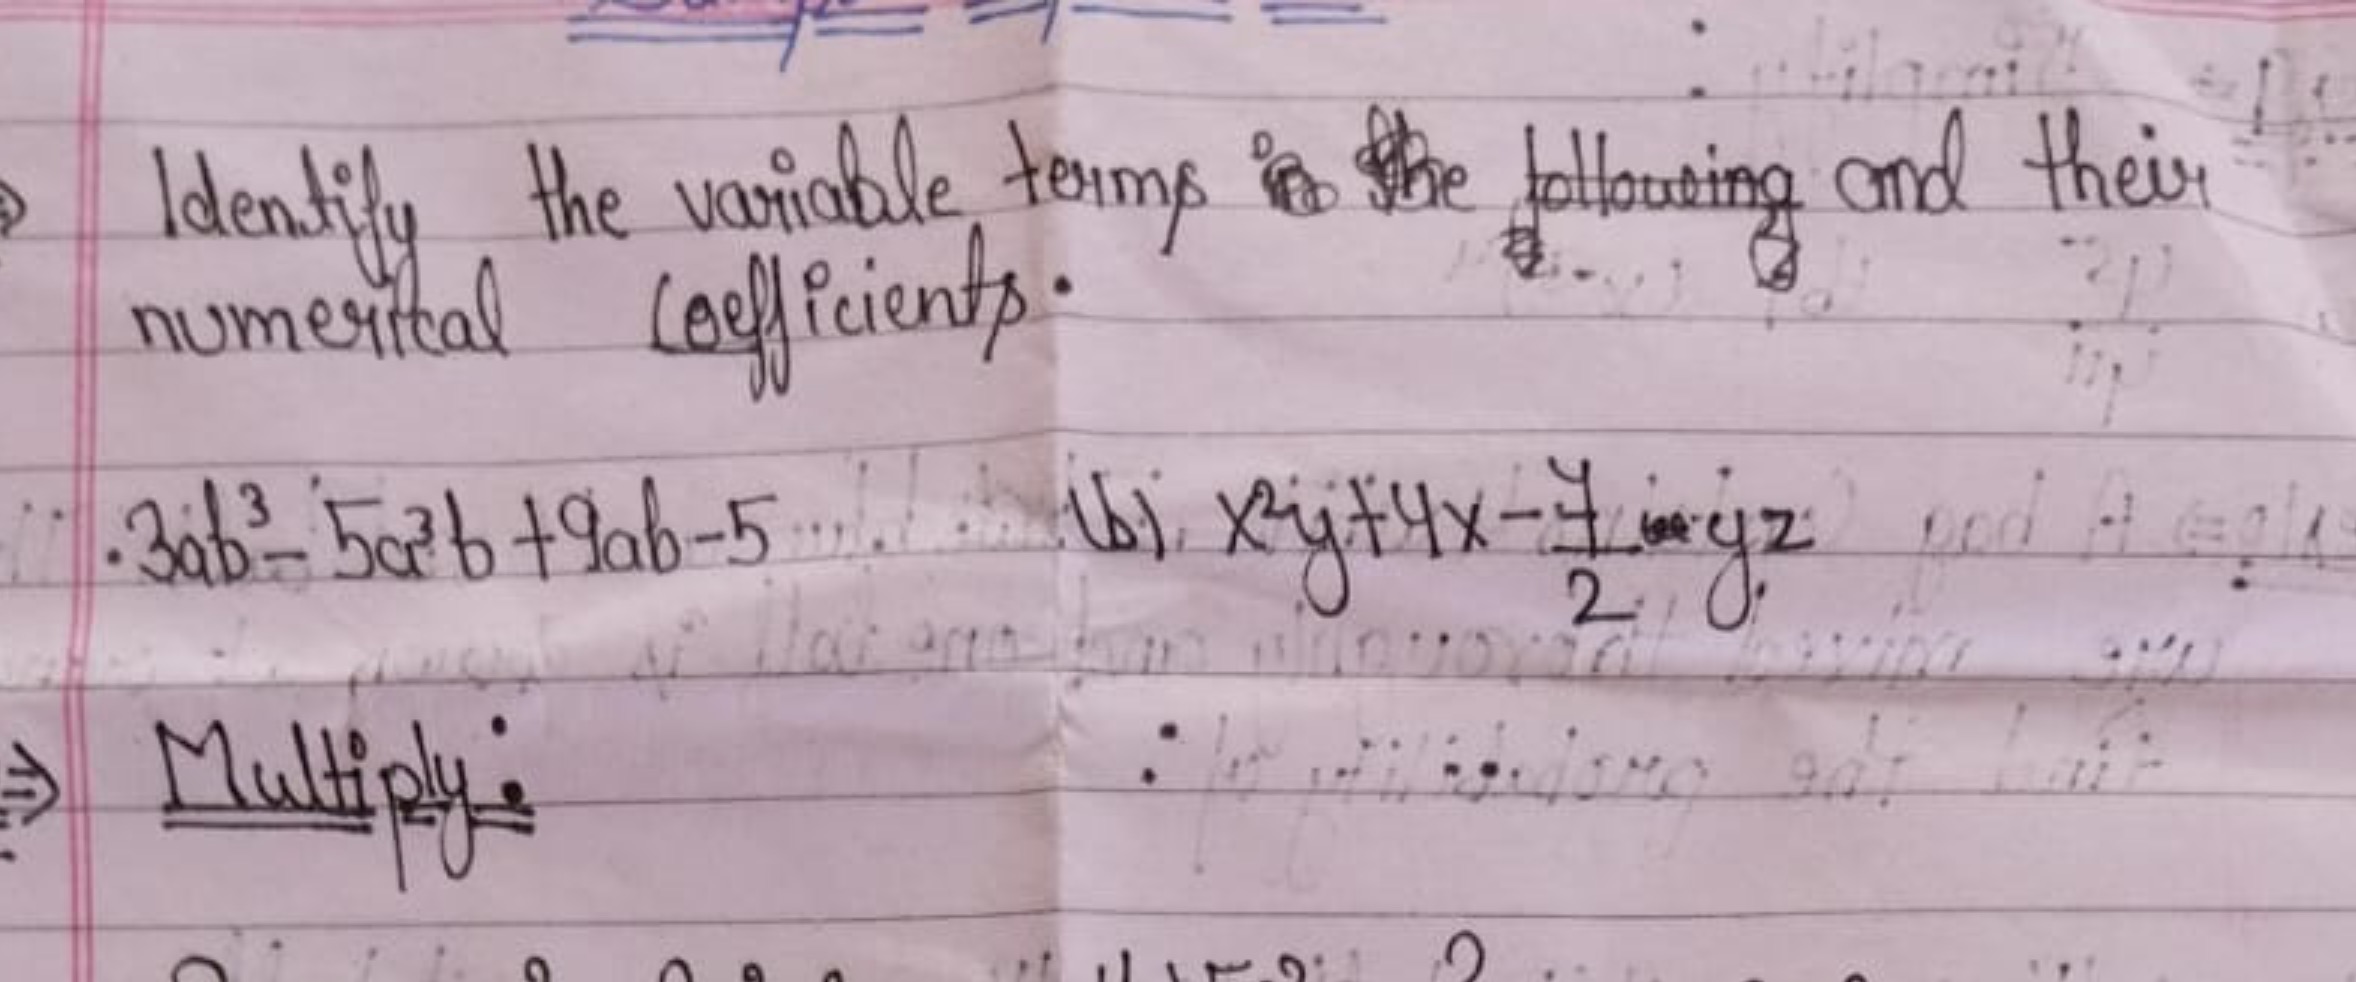 Identify the variable terms in the following and their
numerical Coefficients.
.3ab³ - 5a²b + 9ab - 5 (b) x²y + 4x - 7/2 yz
Multiply: